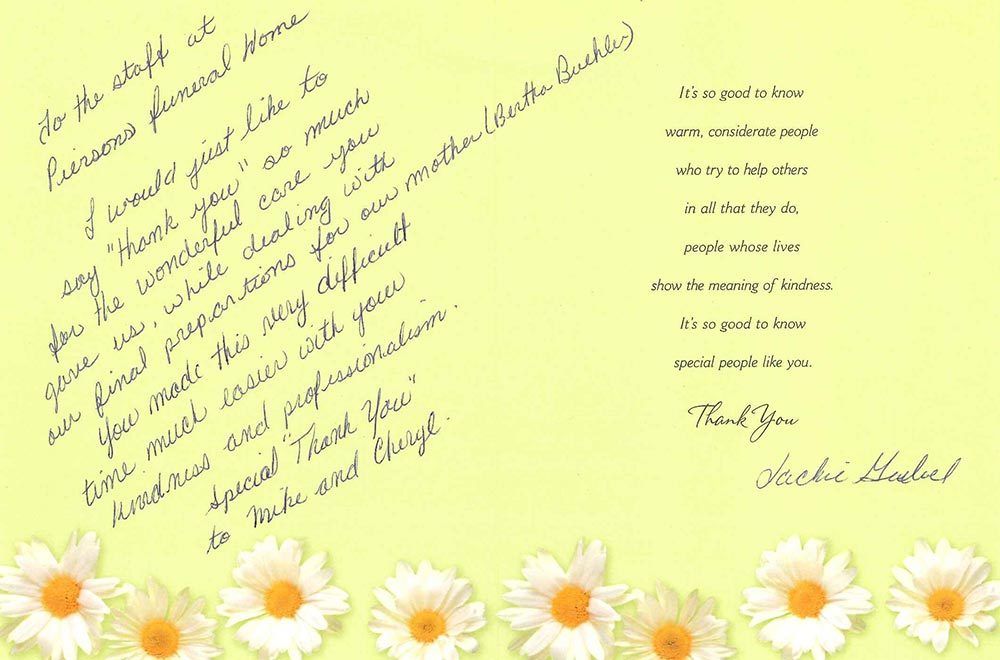 To the staff at
Piersons Funeral Home
I would just like to
say "thank you" so much
for the wonderful care you
gave us, while dealing with
our final preparations for our mother (Bertha Buehler)
You made this very difficult
time much easier with your
kindness and professionalism.
Special "Thank You"
to Mike and Cheryl.
It's so good to know
warm, considerate people
who try to help others
in all that they do,
people whose lives
show the meaning of kindness.
It's so good to know
special people like you.
Thank You
Jackie